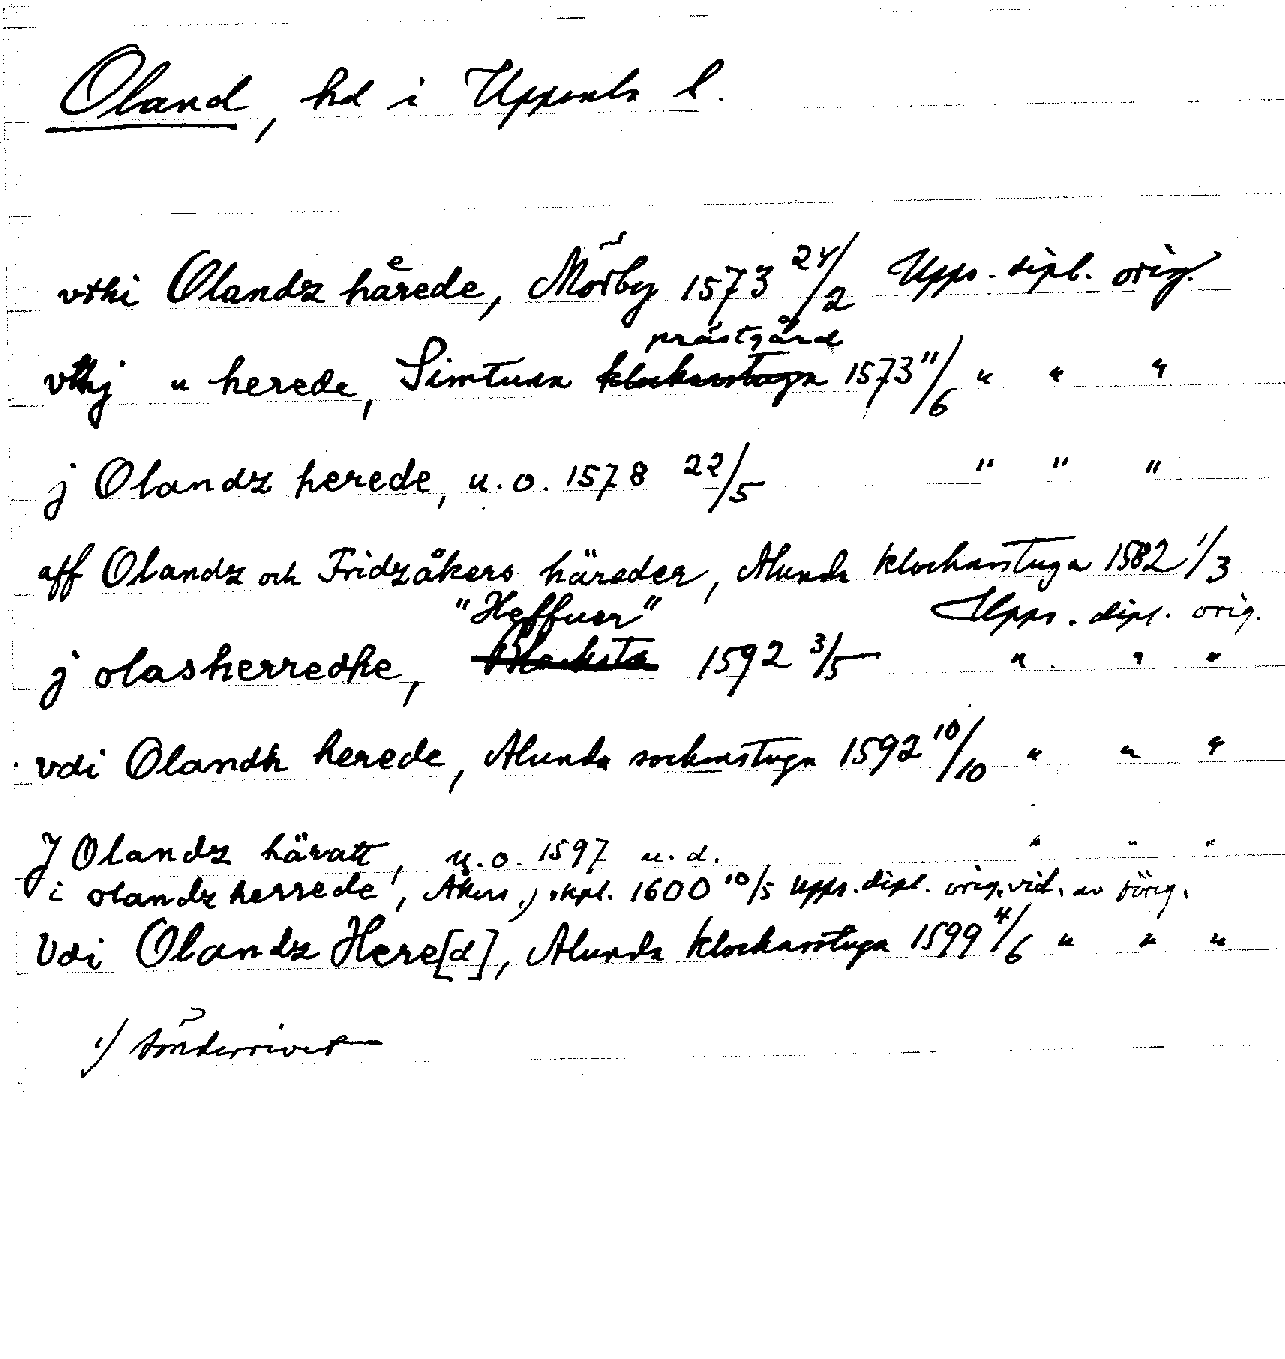 Oland, hd i Uppsala l.
vthi Olandz hårede, Mörby 1573 24/2 Upps. dipl. orig.
prästgård
vthj " herede, Simtuna klockarstuga 1573 11/6 " " "
j Olandz herede, u.o. 1578 22/5 " " "
aff Olandz och Fridzåkers häreder, Alunda klockarstuga 1582 1/3
"Heffner" Upps. dipl. orig.
j olasherredhe, Blacksta 1592 3/5 " " "
vdi Olandh herede, Alunda sockenstuga 1592 10/10 " " "
J Olandz häratt, u.o. 1597 u.d. " " "
i olandz herrede, Åkers, skpl. 1600 10/5 Upps. dipl. orig. vid. av
Vdi Olandz Here[d], Alunda klockarstuga 1599 4/6 " " "
1/ sönderrivet